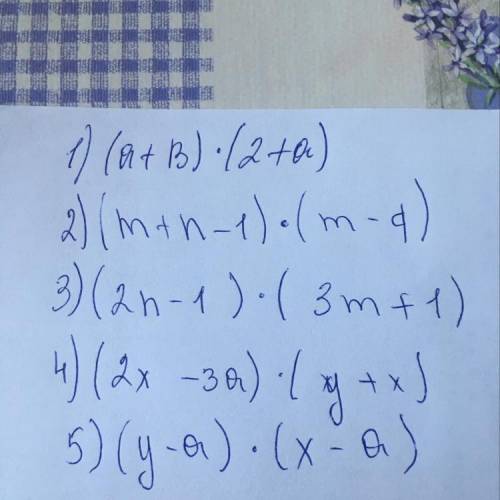 1) (a+b)·(2+a)
2) (m+n-1)·(m-q)
3) (2n-1)·(3m+1)
4) (2x-3a)·(y+x)
5) (y-a)·(x-a)